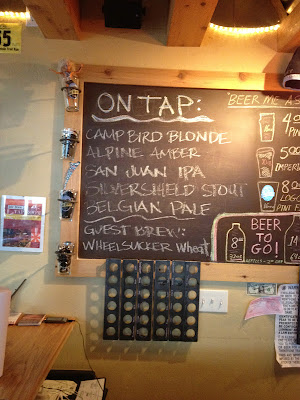 55
ON TAP:
CAMP BIRD BLONDE
ALPINE AMBER
SAN JUAN IPA
SILVERSHIELD STOUT
BELGIAN PALE
GUEST BREW:
WHEELSUCKER Wheat
"BEER ME A
4
PINT
5
IMPERI
8
LOGO
PINT
BEER
TO
GO!
8